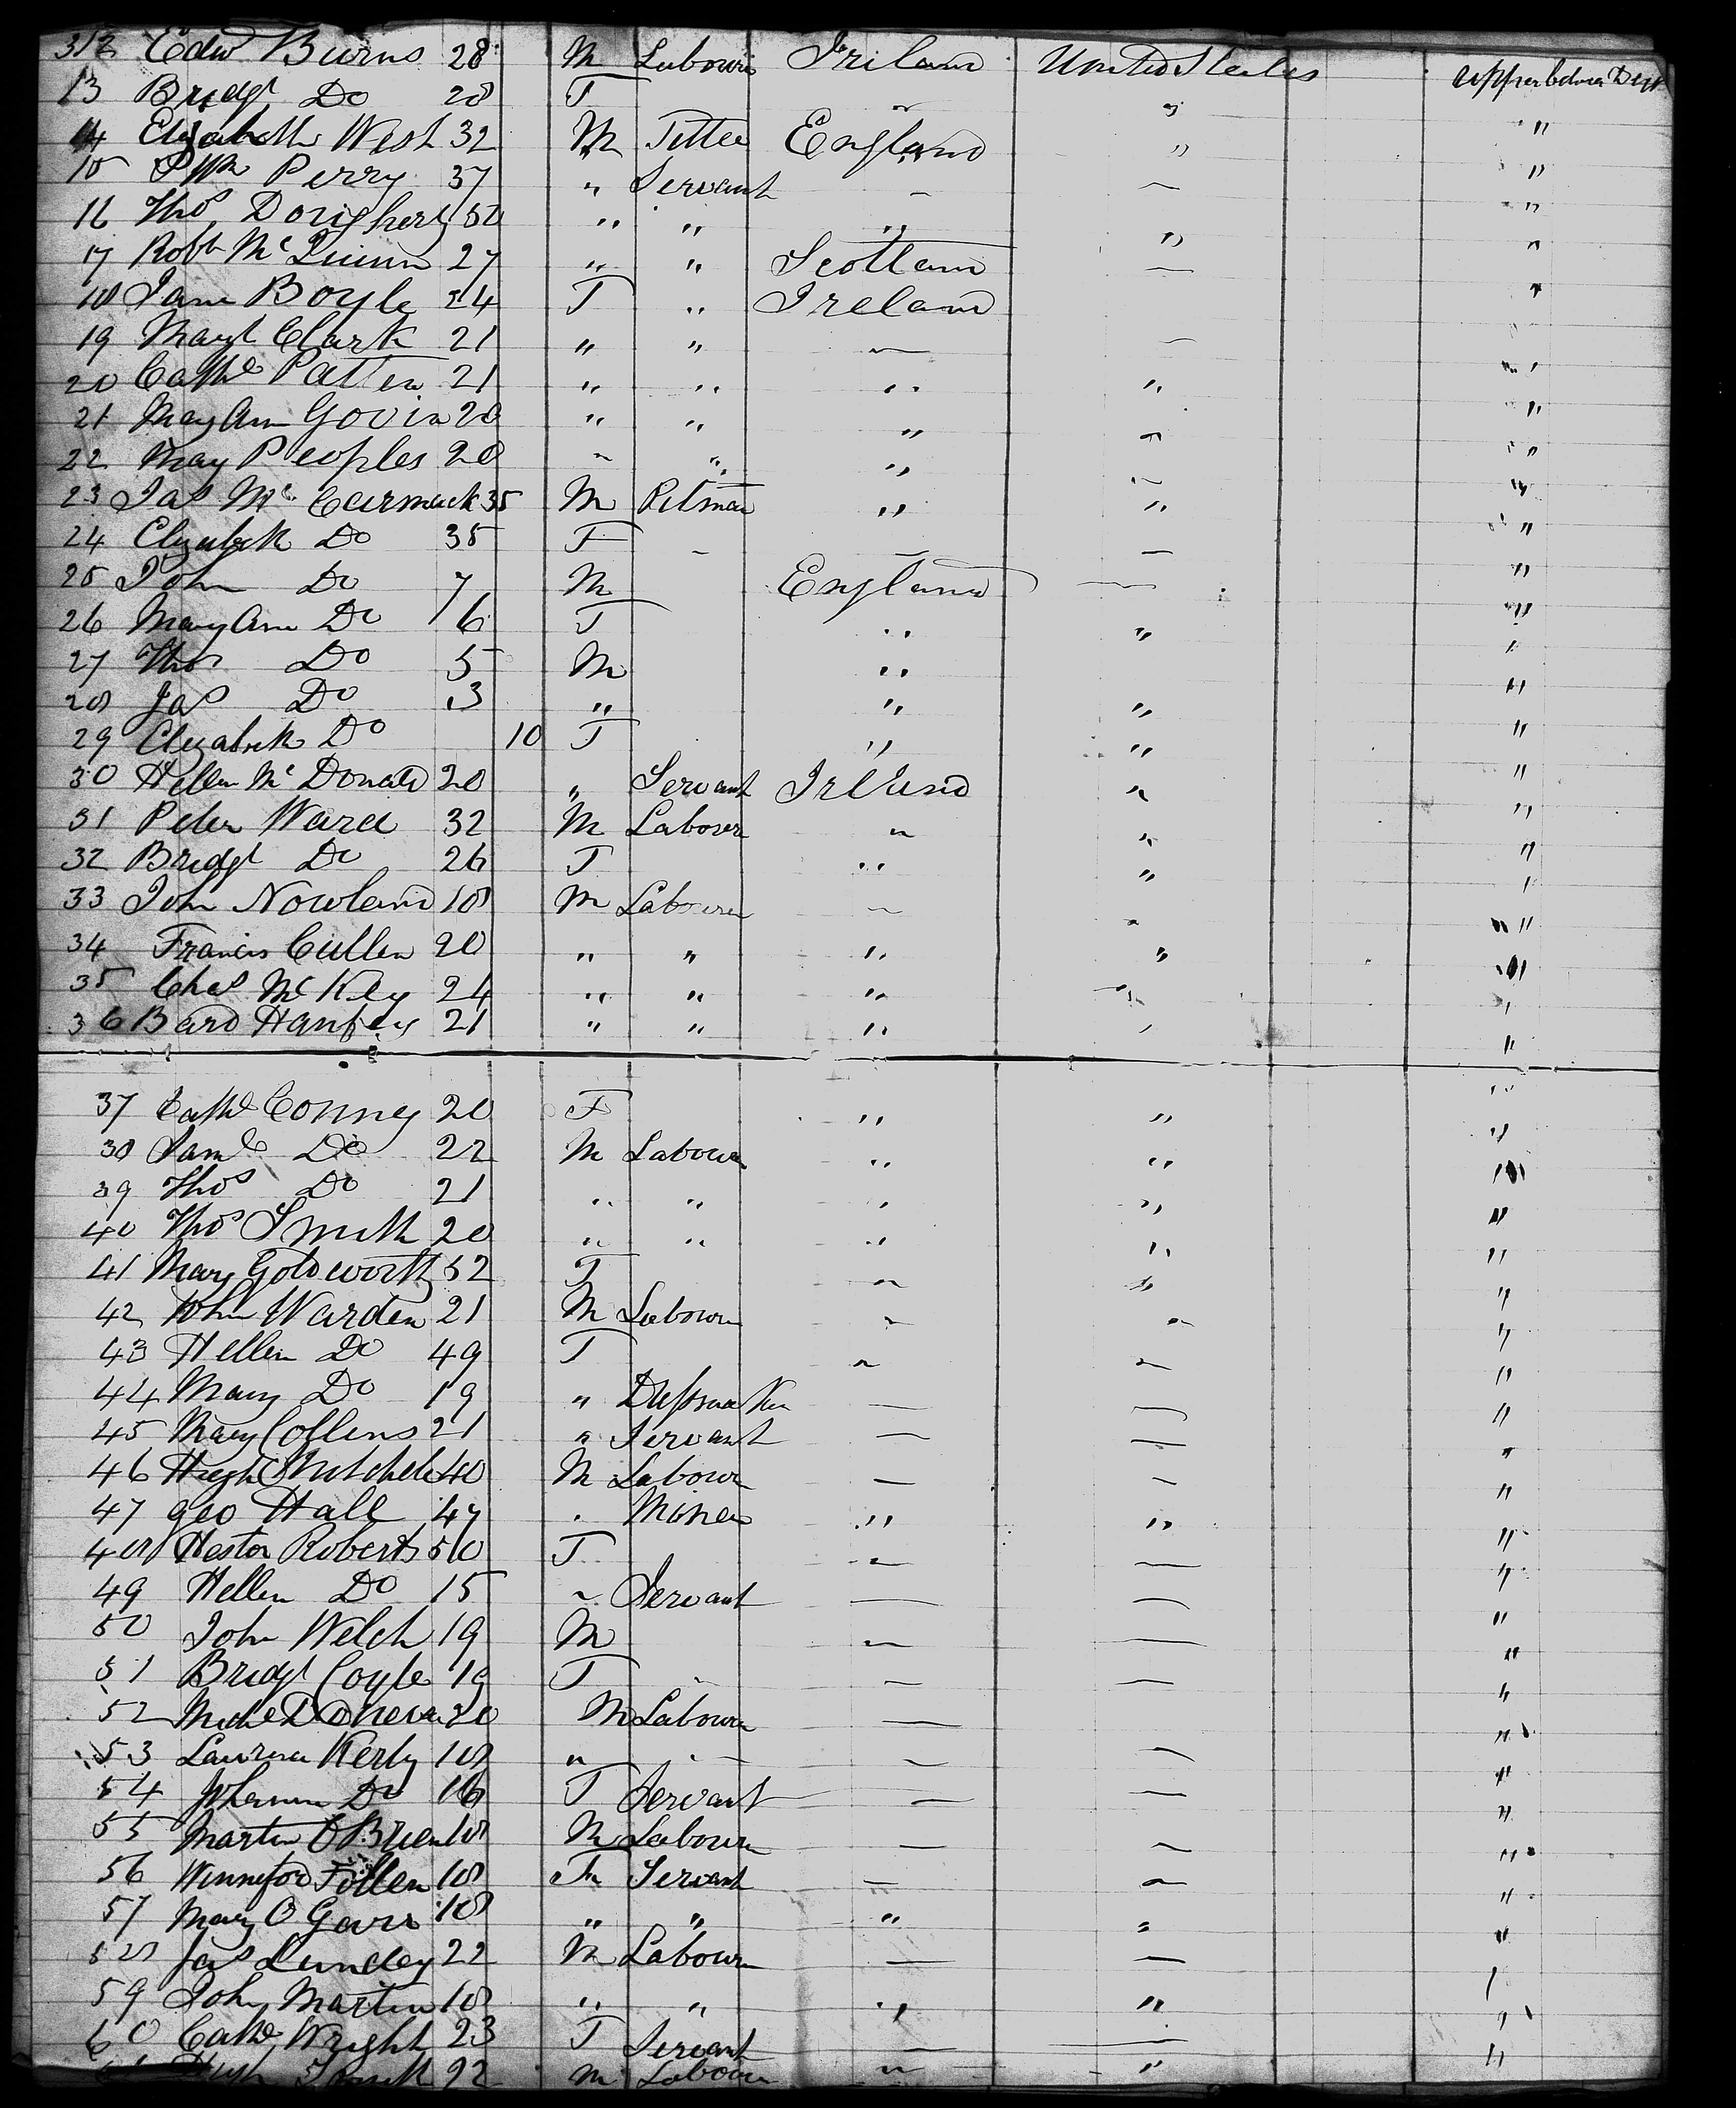 312 Edwd Burns 28 M Labourer Ireland United States Upper between Deck
13 Bridgt Do 28 F " " "
14 Elizabeth West 32 M England " "
15 Perry 37 " Servant " — "
16 Thos Dougherty 50 " " " " "
17 Robt McQuinn 27 " " Scotland — "
18 Jane Boyle 24 F " Ireland "
19 Margt Clark 21 " " — —
20 Cathe Patten 21 " " " " "
21 Mary Ann Govin 20 " " " " "
22 May Peoples 20 " " " " "
23 Jas Mc Cormack 35 M Pitman " " "
24 Elizabeth Do 35 F — — — "
25 John Do 7 M England — "
26 Mary Ann Do 6 F " " "
27 Thos Do 5 M " "
28 Jas Do 3 " " " "
29 Elizabeth Do 10 F " " "
30 Hellen McDonald 20 " Servant Ireland " "
31 Peter Ward 32 M Labourer " " "
32 Bridgt Do 26 F " " "
33 John Nowland 18 M Labourer — " "
34 Francis Cullen 20 " " " " "
35 Chas McKey 24 " " " " "
36 21 " " " " "
37 Cathe Conney 20 F " " "
38 Saml Do 22 M Labourer " " "
39 Thos Do 21 " " " " "
40 Thos Smith 20 " " " " "
41 Mary Goldworthy 52 F " " "
42 John Warden 21 M Labourer " " "
43 Hellen Do 49 F " " "
44 Mary Do 19 " Dressmaker — — "
45 Mary Collens 21 " Servant — — "
46 Hugh Mitchele 40 M Labour — — "
47 Geo Hall 47 " Miner " " "
48 Hester Roberts 50 F — — "
49 Hellen Do 15 " Servant — — "
50 John Welch 19 M — — "
51 Bridgt Coyle 19 F — — "
52 20 M Labourer — — "
53 Kerby 18 " — — "
54 Johanna Do 16 F Servant — — "
55 Martin O Brien 18 M Labourer — — "
56 Winneford Follen 18 F Servant — — "
57 Mary O Gara 18 " " " " "
58 Jas Lundey 22 M Labourer — — "
59 John Martin 18 " " " " "
60 Cathe Wright 23 F Servant — — "
61 Hugh Smith 22 M Labourer " " "